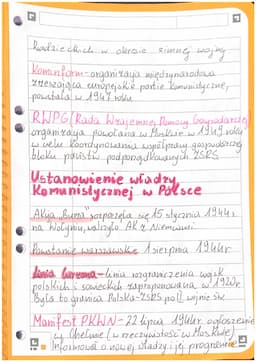 radzieckich w okresie zimnej wojny
Kominform - organizacja międzynarodowa
zrzeszająca europejskie partie komunistyczne,
powstała w 1947 roku
RWPG (Rada Wzajemnej Pomocy Gospodarczej)
organizacja powołana w Moskwie w 1949 roku
w celu koordynowania współpracy gospodarczej
bloku państw podporządkowanych ZSRS
Ustanowienie władzy
Komunistycznej w Polsce
Akcja „Burza" rozpoczęła się 15 stycznia 1944 r
na Wołyniu, walczyło AK z Niemcami.
Powstanie warszawskie 1 sierpnia 1944r
linia Curzona - linia rozgraniczenia wojsk
polskich i sowieckich zaproponowana w 1920r
Była to granica Polska-ZSRS po II wojnie św
Manifest PKWN - 22 lipca 1944r ogłoszenie
w Chełmie (w rzeczywistości w Moskwie)
Informował o nowej władzy i jej programie